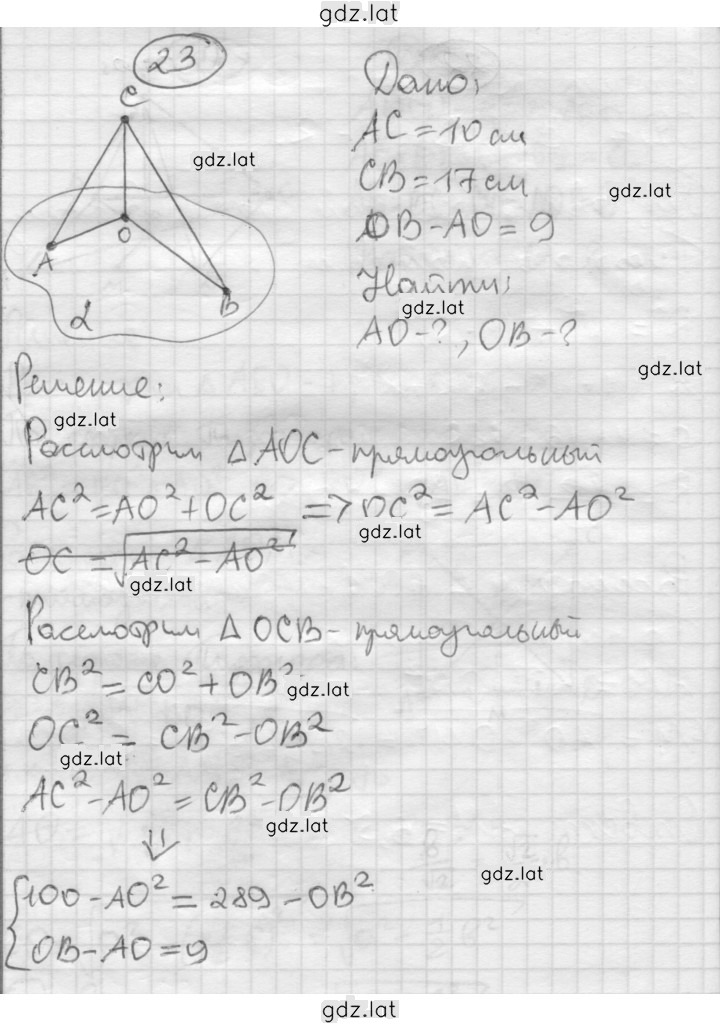 gdz.lat
23
C
Дано:
AC = 10 см
gdz.lat
CB = 17 см
gdz.lat
OB - AO = 9
O
A
B
α
Найти:
gdz.lat
AO - ?, OB - ?
gdz.lat
Решение:
gdz.lat
Рассмотрим Δ AOC - прямоугольный
AC² = AO² + OC² => OC² = AC² - AO²
gdz.lat
OC = √AC² - AO²
gdz.lat
Рассмотрим Δ OCB - прямоугольный
CB² = CO² + OB²
gdz.lat
OC² = CB² - OB²
gdz.lat
AC² - AO² = CB² - OB²
gdz.lat
⇓
{ 100 - AO² = 289 - OB²
gdz.lat
OB - AO = 9
gdz.lat